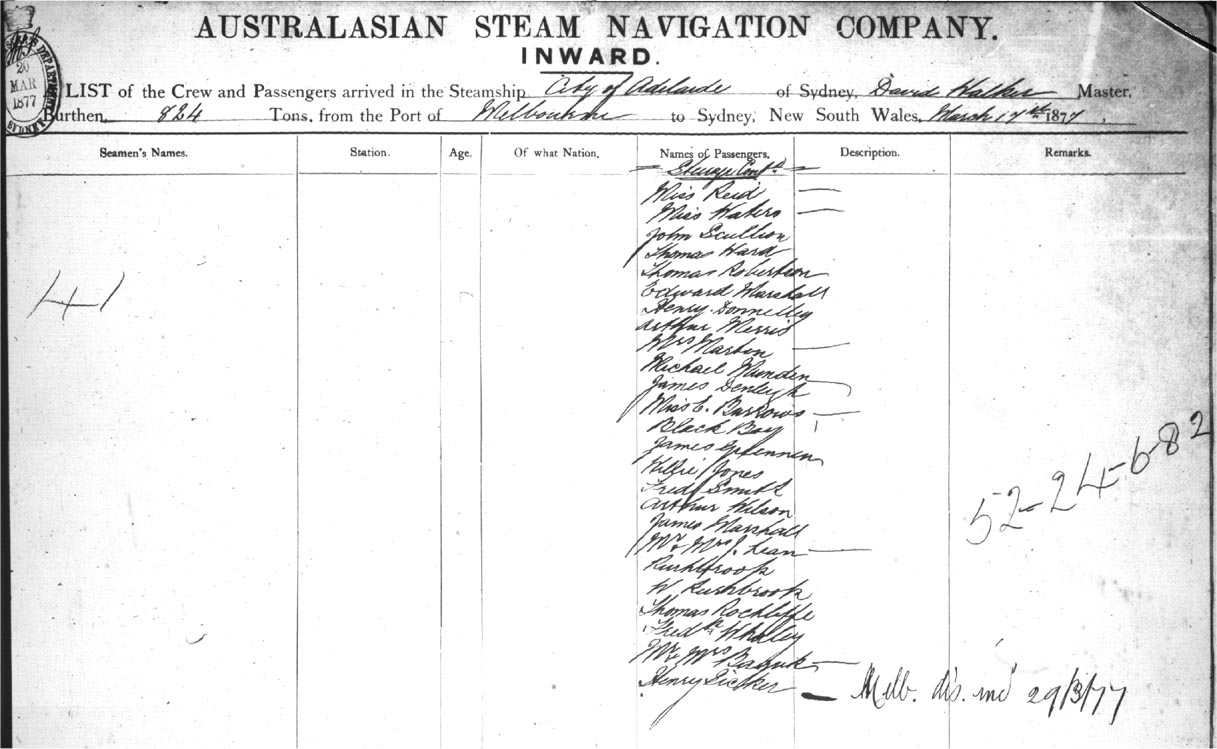 AUSTRALASIAN STEAM NAVIGATION COMPANY.
INWARD.
20
MAR
1877
SYDNEY
LIST of the Crew and Passengers arrived in the Steamship City of Adelaide of Sydney, David Walker Master,
Burthen, 824 Tons, from the Port of Melbourne to Sydney, New South Wales, March 17th 1877.
Seamen's Names. Station. Age. Of what Nation. Names of Passengers. Description. Remarks.
Steerage Contd
Miss Reid
Miss Waters
John Scullion
Thomas Ward
Thomas Robertson
Edward Marshall
41
Henry Donnelley
Arthur Merris
Mrs Marton
Michael Munden
James
Miss E. Burrows
Black Boy
James
Willie Jones
Fred Smith
52-24-6-82
Arthur Wilson
James Marshall
Mr & Mrs J. Lean
Rushbrook
W Rushbrook
Thomas Rockliffe
Fredk Whalley
Mr & Mrs
Henry
Melb. dis. ind 29/3/77